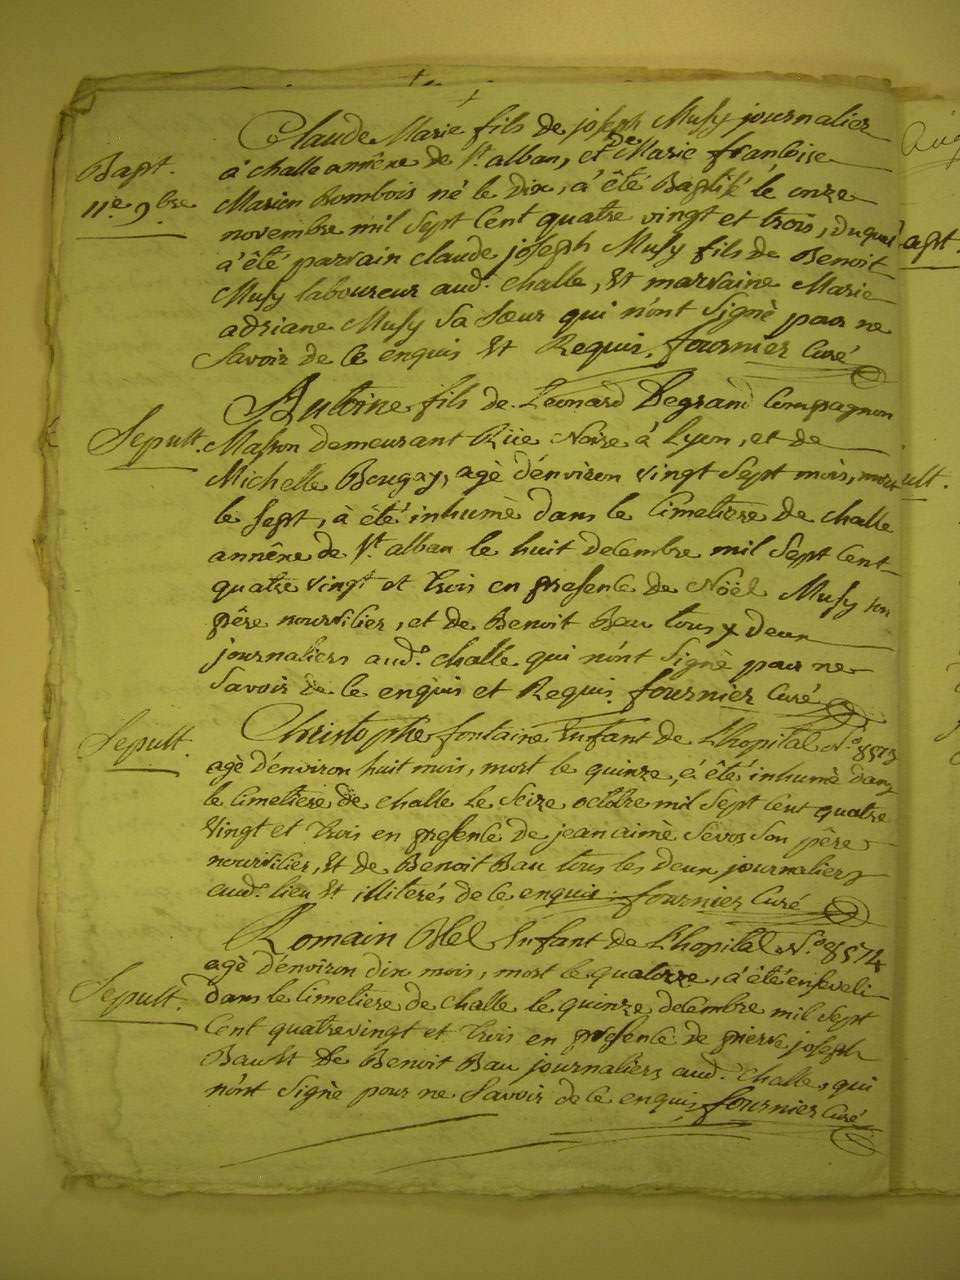 Claude Marie fils de joseph Musy journalier
Bapt.
à challe annêxe de St alban, et de Marie francoise
11e 9bre
Marion Rombois né le dix, a été Baptisé le onze
novembre mil sept Cent quatre vingt et trois, duquel
a été parrain claude joseph Musy fils de Benoit
Musy laboureur aud. challe, Et marraine Marie
adriane Musy Sa Sœur qui n'ont Signè pour ne
Savoir de Ce enquis Et Requis. fournier Curé
Antoine fils de Léonard Degrand Compagnon
Sepult.
Masson demeurant Rüe Noire à Lyon, et de
Michelle Bougay, agè d'environ vingt Sept mois, mort
le sept, à été inhumè dans le Cimetiere de challe
annêxe de St alban le huit decembre mil Sept Cent
quatre vingt et trois en presence de Nöel Musy son
père nourricier, et de Benoit Bau tous x deux
journaliers aud. challe qui n'ont Signè pour ne
Savoir de Ce enquis et Requis. fournier Curé
Christophe fontaine Enfant de L'hopital No 8573
Sepult.
agè d'environ huit mois, mort le quinze, a été inhumè dans
le Cimetiere de challe Le Seize octobre mil Sept Cent quatre
Vingt et trois en presence de jean aimè Sevos Son père
nourricier, Et de Benoit Bau tous les deux journaliers
aud. lieu Et illiterés de Ce enquis. fournier Curé
Romain Blel Enfant de L'hopital No 8574
agè d'environ dix mois, mort le quatorze, a été enseveli
Sepult.
dans le Cimetiere de challe le quinze decembre mil Sept
Cent quatrevingt et trois en presence de pierre joseph
Bault De Benoit Bau journaliers aud. Challe, qui
n'ont Signè pour ne Savoir de Ce enquis fournier Curé